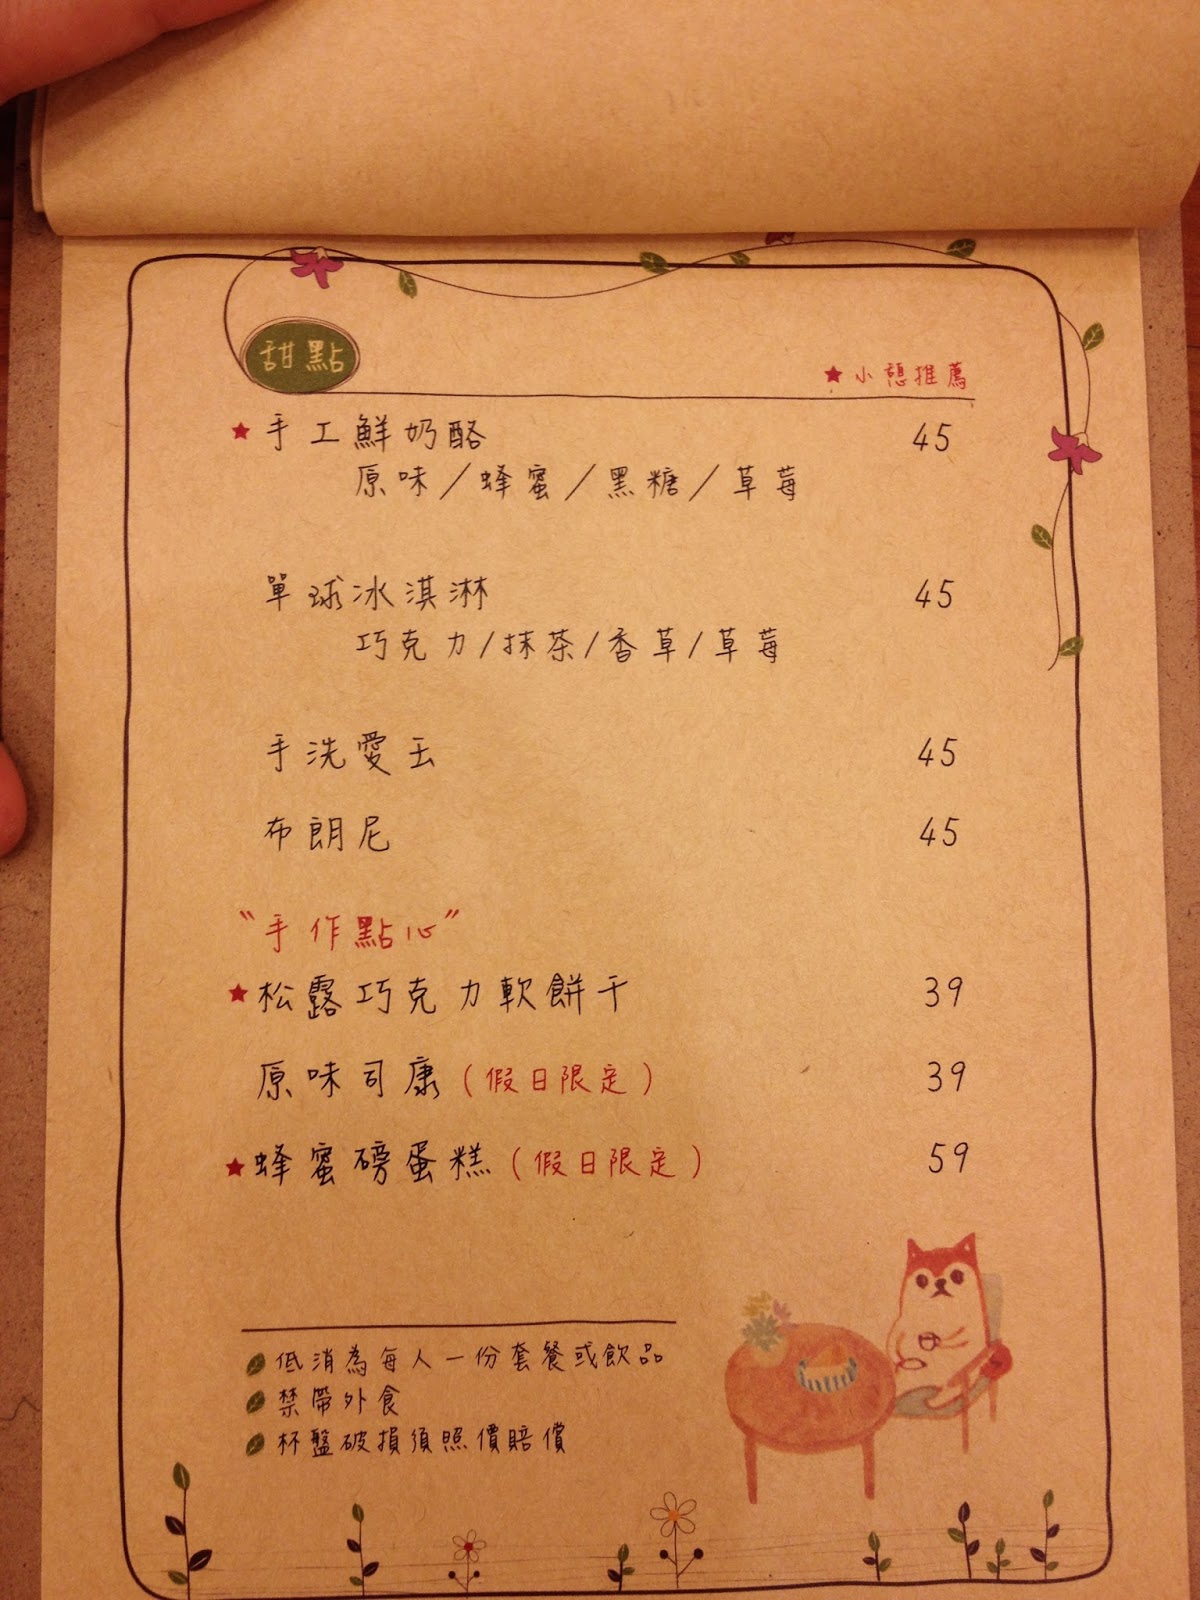 甜點
★小憩推薦
★手工鮮奶酪 45
原味/蜂蜜/黑糖/草莓
單球冰淇淋 45
巧克力/抹茶/香草/草莓
手洗愛玉 45
布朗尼 45
"手作點心"
★松露巧克力軟餅干 39
原味司康(假日限定) 39
★蜂蜜磅蛋糕(假日限定) 59
低消為每人一份套餐或飲品
禁帶外食
杯盤破損須照價賠償